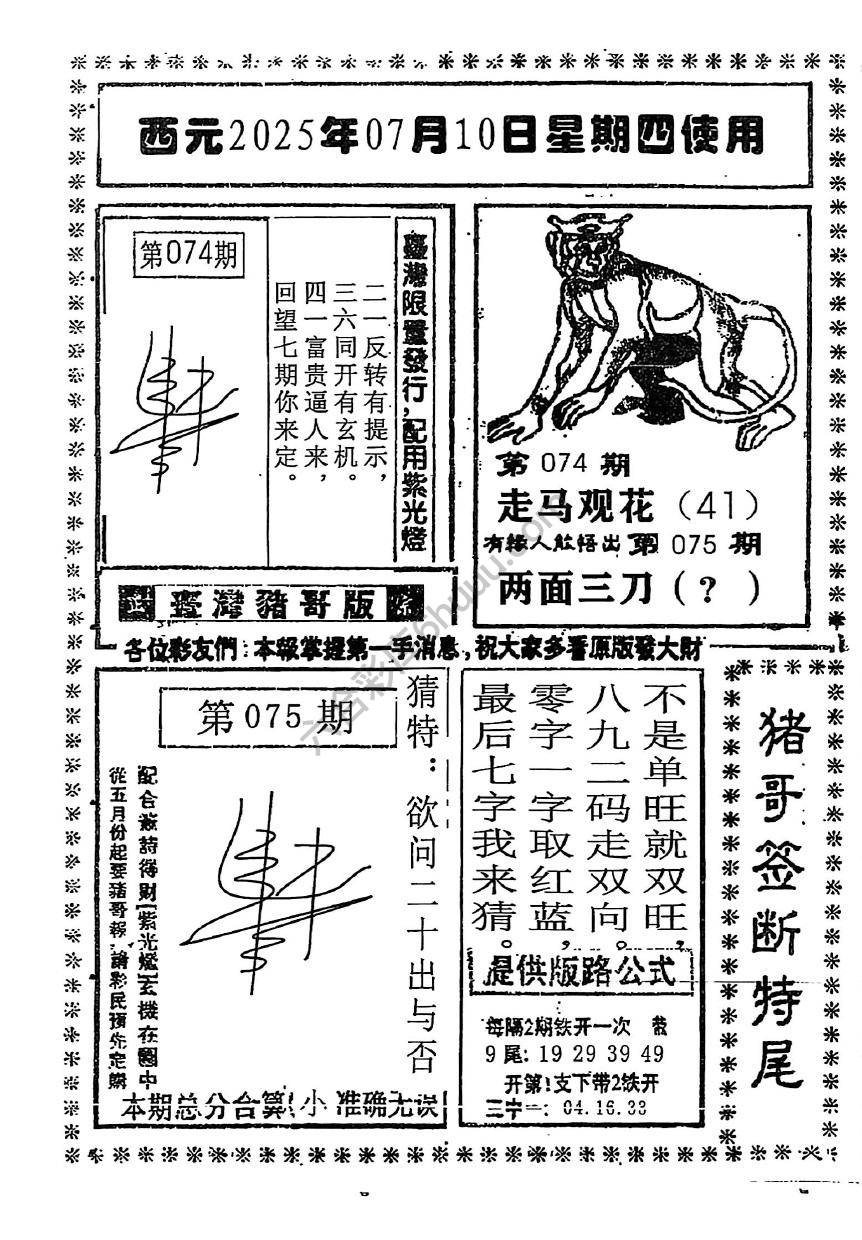 西元2025年07月10日星期四使用
第074期
臺灣限量發行,配用紫光燈
二一反转有提示,
三六同开有玄机。
四一富贵逼人来,
回望七期你来定。
臺灣豬哥版
第 074 期
走马观花（41）
有緣人能悟出 第 075 期
两面三刀（？）
各位彩友們:本報掌握第一手消息,祝大家多看原版發大財
第 075 期
猜特：欲问二十出与否
從五月份起要豬哥報,請彩民預先定購
本期总分合算小 准确无误
不是单旺就双旺,
八九二码走双向。
零字一字取红蓝,
最后七字我来猜。
提供版路公式
每隔2期铁开一次
9 尾: 19 29 39 49
开第1支下带2铁开
三中一: 04.16.33
猪哥签断特尾